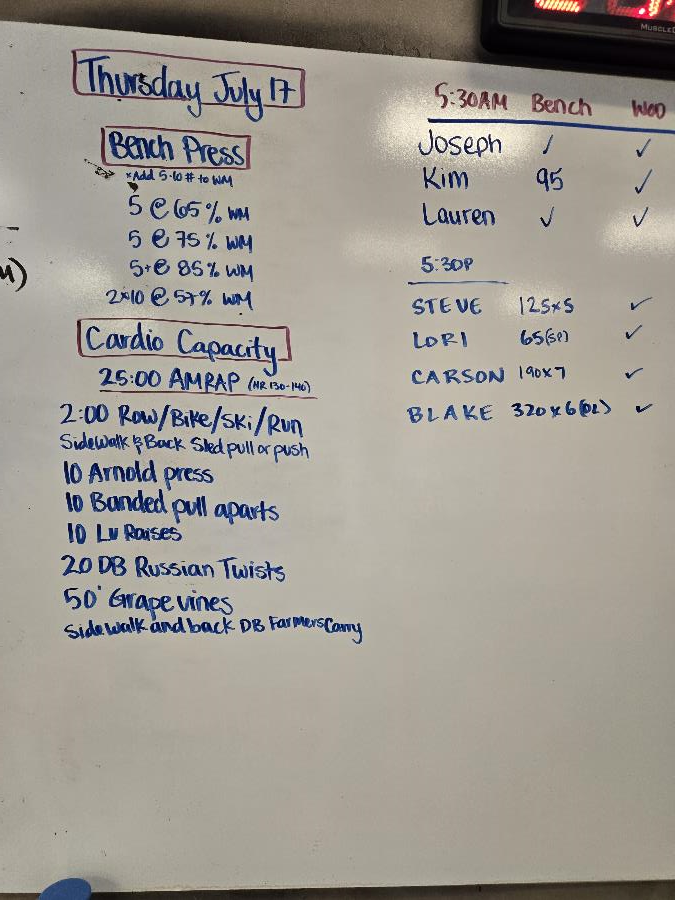 Thursday July 17
Bench Press
*Add 5-10# to WM
5 @ 65% WM
5 @ 75% WM
5+@ 85% WM
2x10 @ 57% WM
Cardio Capacity
25:00 AMRAP (HR 130-140)
2:00 Row/Bike/Ski/Run
Sidewalk & Back Sled pull or push
10 Arnold press
10 Banded pull aparts
10 Lu Raises
20 DB Russian Twists
50' Grapevines
Sidewalk and back DB Farmers Carry
5:30AM Bench WOD
Joseph ✓ ✓
Kim 95 ✓
Lauren ✓ ✓
5:30P
STEVE 125x5 ✓
LORI 65(SP) ✓
CARSON 190x7 ✓
BLAKE 320x6(DL) ✓